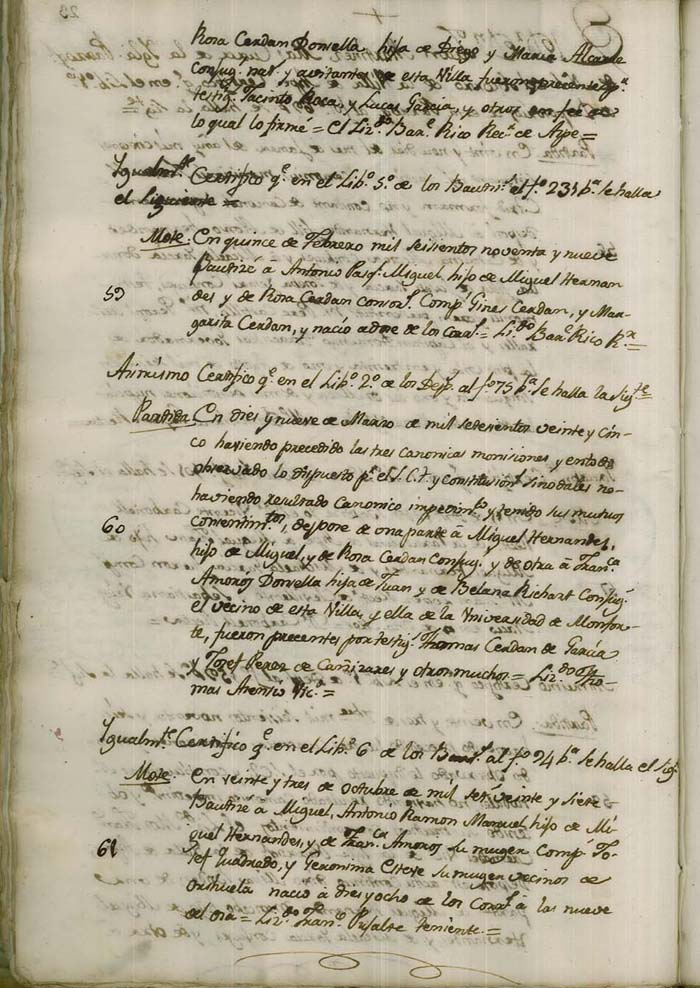 Rosa Cerdan Donsella hija de Diego y Maria Alcarde
Conjug. nat. y avitantes de esta Villa fueron precentes pr.
testig. Jacinto Roca, y Lucas Garcia, y otros en fee de
lo qual lo firmé = el Liz.do Bar.e Rico Rec.r de Aspe =
Ygualm.te Certifico q.e en el Lib.o 5.o de los Baut.s al f.o 231 b.a se halla
el siguiente =
Mote. En quince de Febrero mil seisientos noventa y nueve
Bautizé â Antonio Pasq.l Miguel, hijo de Miguel Hernan
59
des y de Rosa Cerdan consor.s Comp.s Gines Cerdan, y Mar-
garita Cerdan, y nacio a dose de los Corr.s = Li.do Bar.e Rico R.r =
Asimismo Certifico q.e en el Lib.o 2.o de los Desp. al f.o 75 b.a se halla la sig.te
Partida. En dies y nueve de Marzo de mil setesientos veinte y cin-
co haviendo precedido las tres canonicas monisiones y en todo
observado lo dispuesto p.r el S.C.T. y constitusion.s sinodales no
haviendo resultado Canonico impedim.to y tenido sus mutuos
60
consentim.tos, despose de una parte â Miguel Hernandes,
hijo de Miguel, y de Rosa Cerdan Conjug. y de otra â Fran.ca
Amorós Donsella hija de Juan y de Belana Richart Conjug.
el vecino de esta Villa, y ella de la Universidad de Monfor-
te, fueron precentes por testig. Thomas Cerdan de Garcia
y Josef Perez de Cañizares y otros muchos = Liz.do Tho-
mas Atensio Vic.o =
Ygualm.te Certifico q.e en el Lib.o 6 de los Baut.s al f.o 24 b.a se halla el sig.
Mote. En veinte y tres de octubre de mil set.s veinte y siete
Bautizé â Miguel, Antonio Ramon Manuel hijo de Mi-
guel Hernandes, y de Fran.ca Amoros su muger Comp.s Jo-
61
sef Quadrado, y Geronima Esteve su muger vecinos de
Orihuela nacio â dies y ocho de los Corr.s â las nueve
del dia = Liz.do Fran.co Pujalte teniente. =